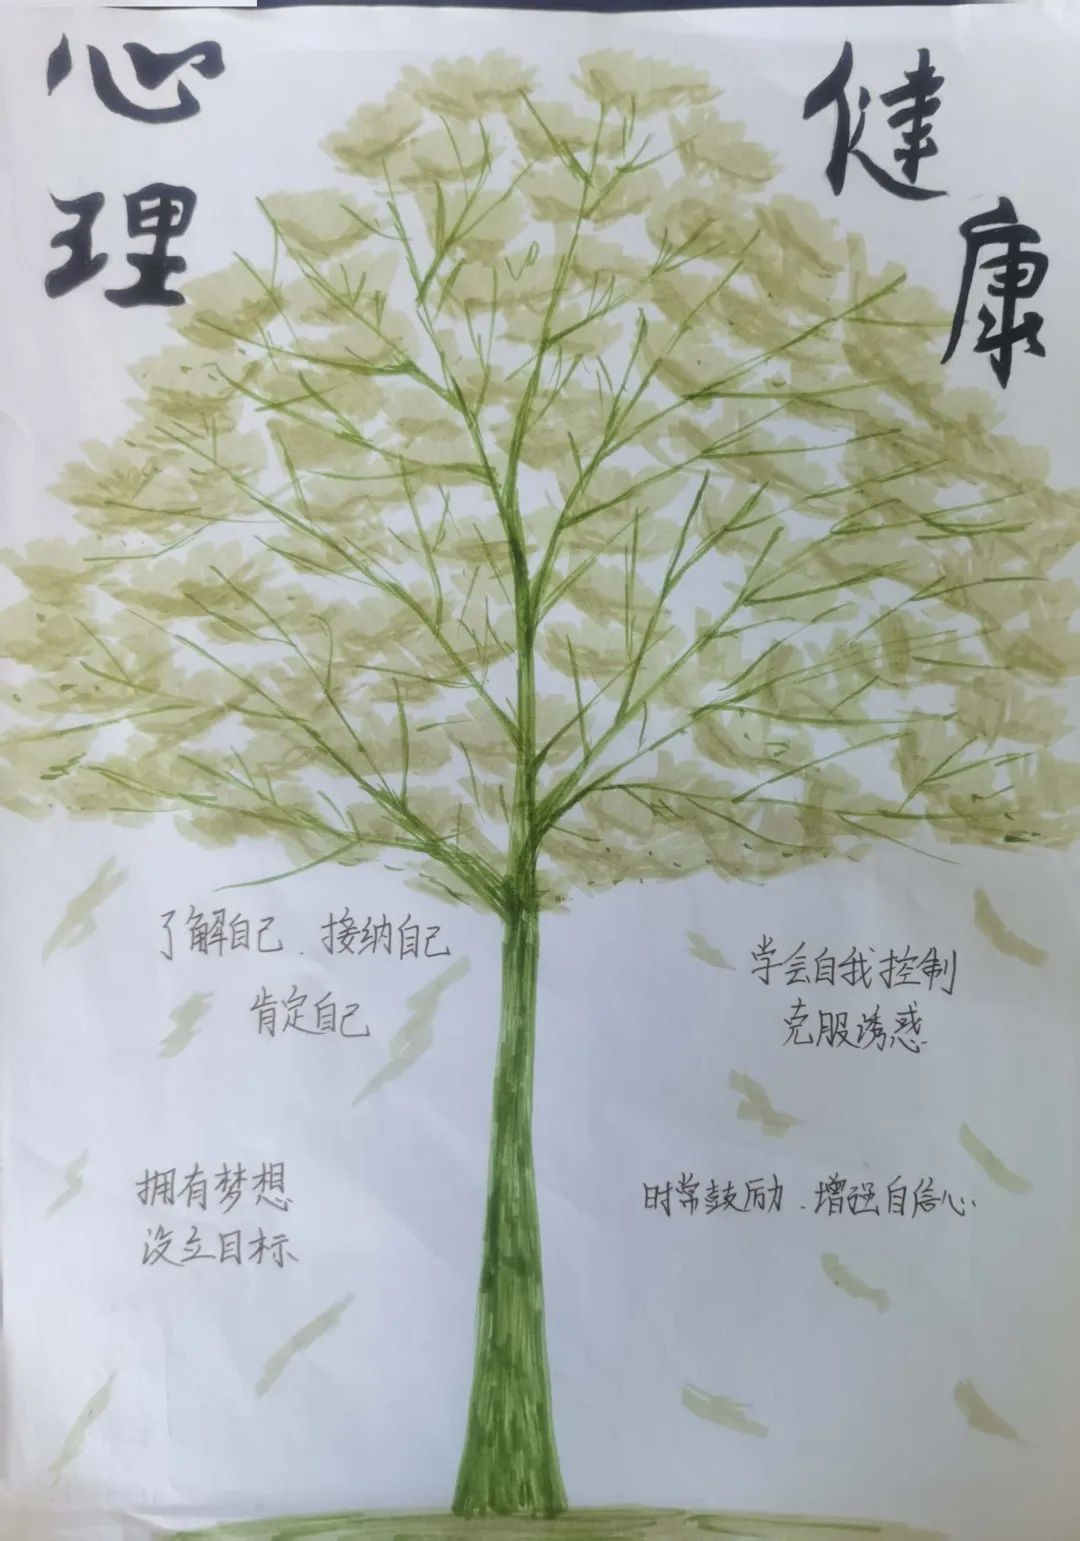 心理
健康
了解自己、接纳自己
肯定自己
学会自我控制
克服诱惑
拥有梦想
设立目标
时常鼓励、增强自信心.